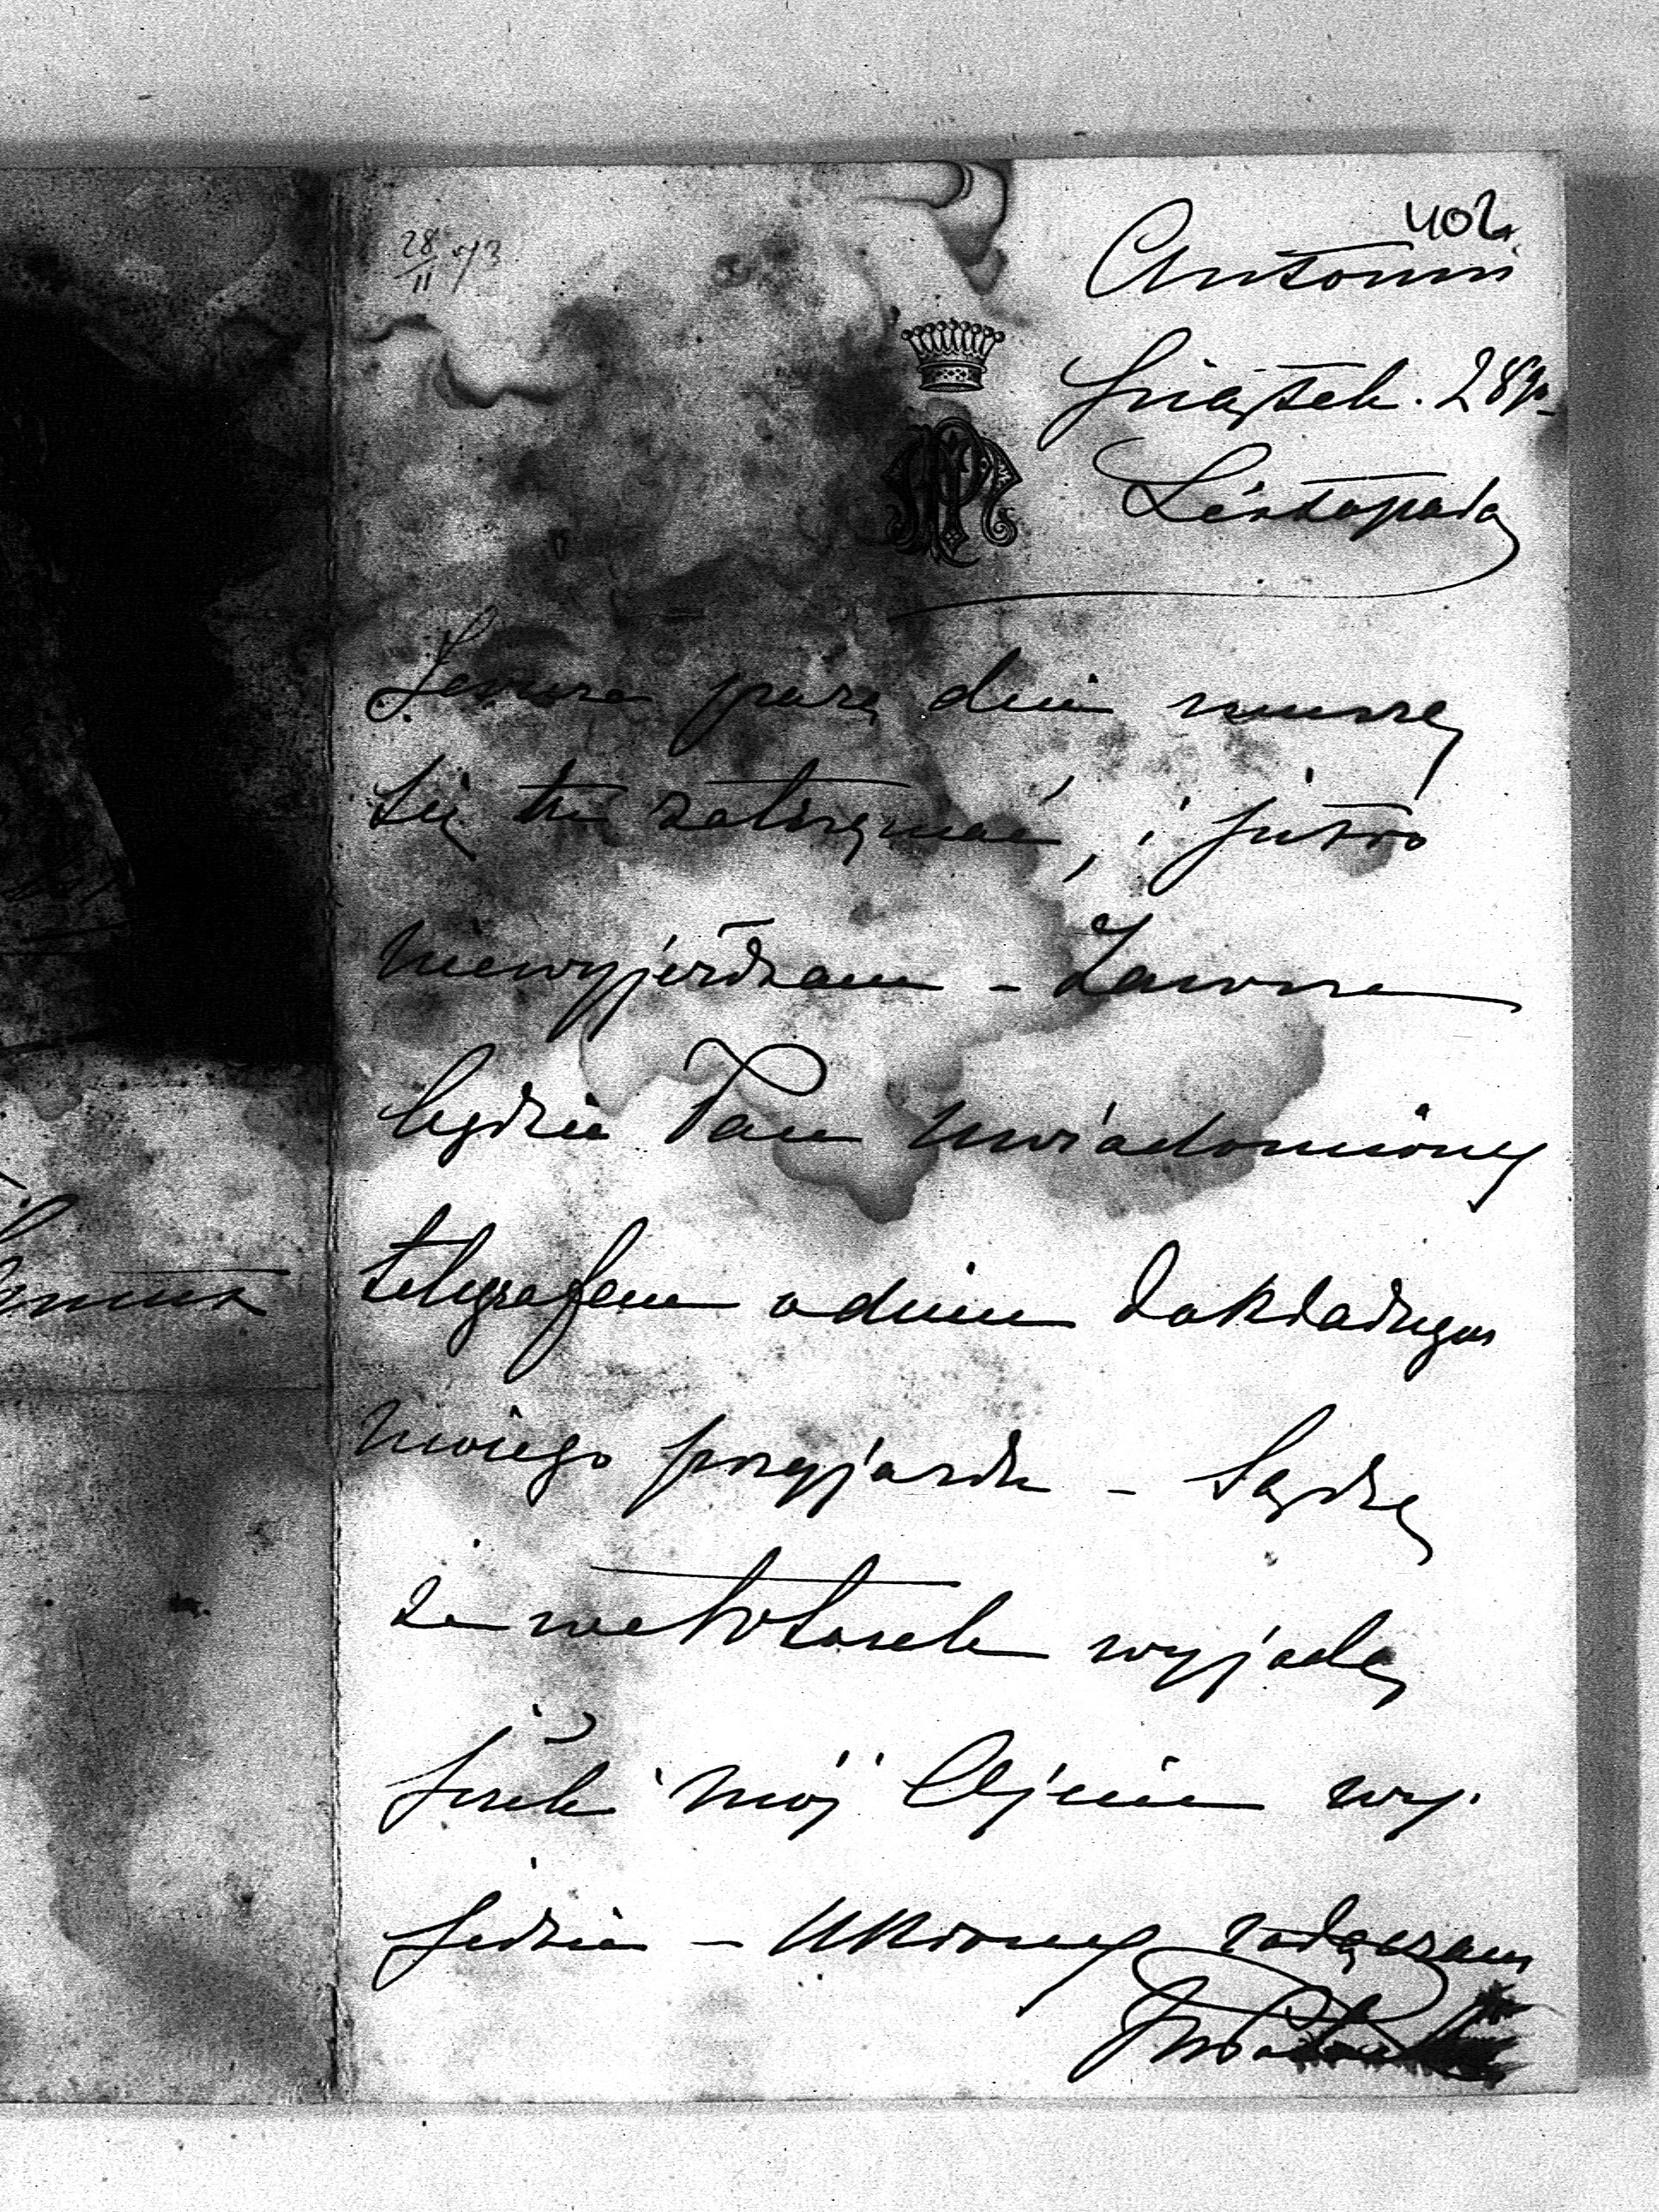 402.
28/11 73
Antonin
Piątek. 28go
Listopada
Jeszcze parę dni muszę
się tu zatrzymać, i jutro
niewyjeżdzam – Zawsze
będzie Pan uwiadomiony
telegrafem o dniu dokładnym
mojego przyjazdu – Sądzę
że we Wtorek wyjadę
jeżeli mój Ojciec wy-
jedzie – Ukłony załączam